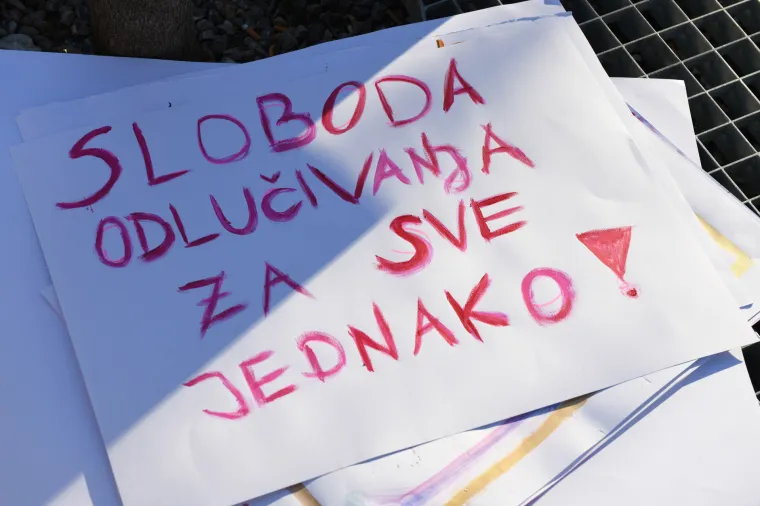 SLOBODA
ODLUČIVANJA
ZA SVE
JEDNAKO!